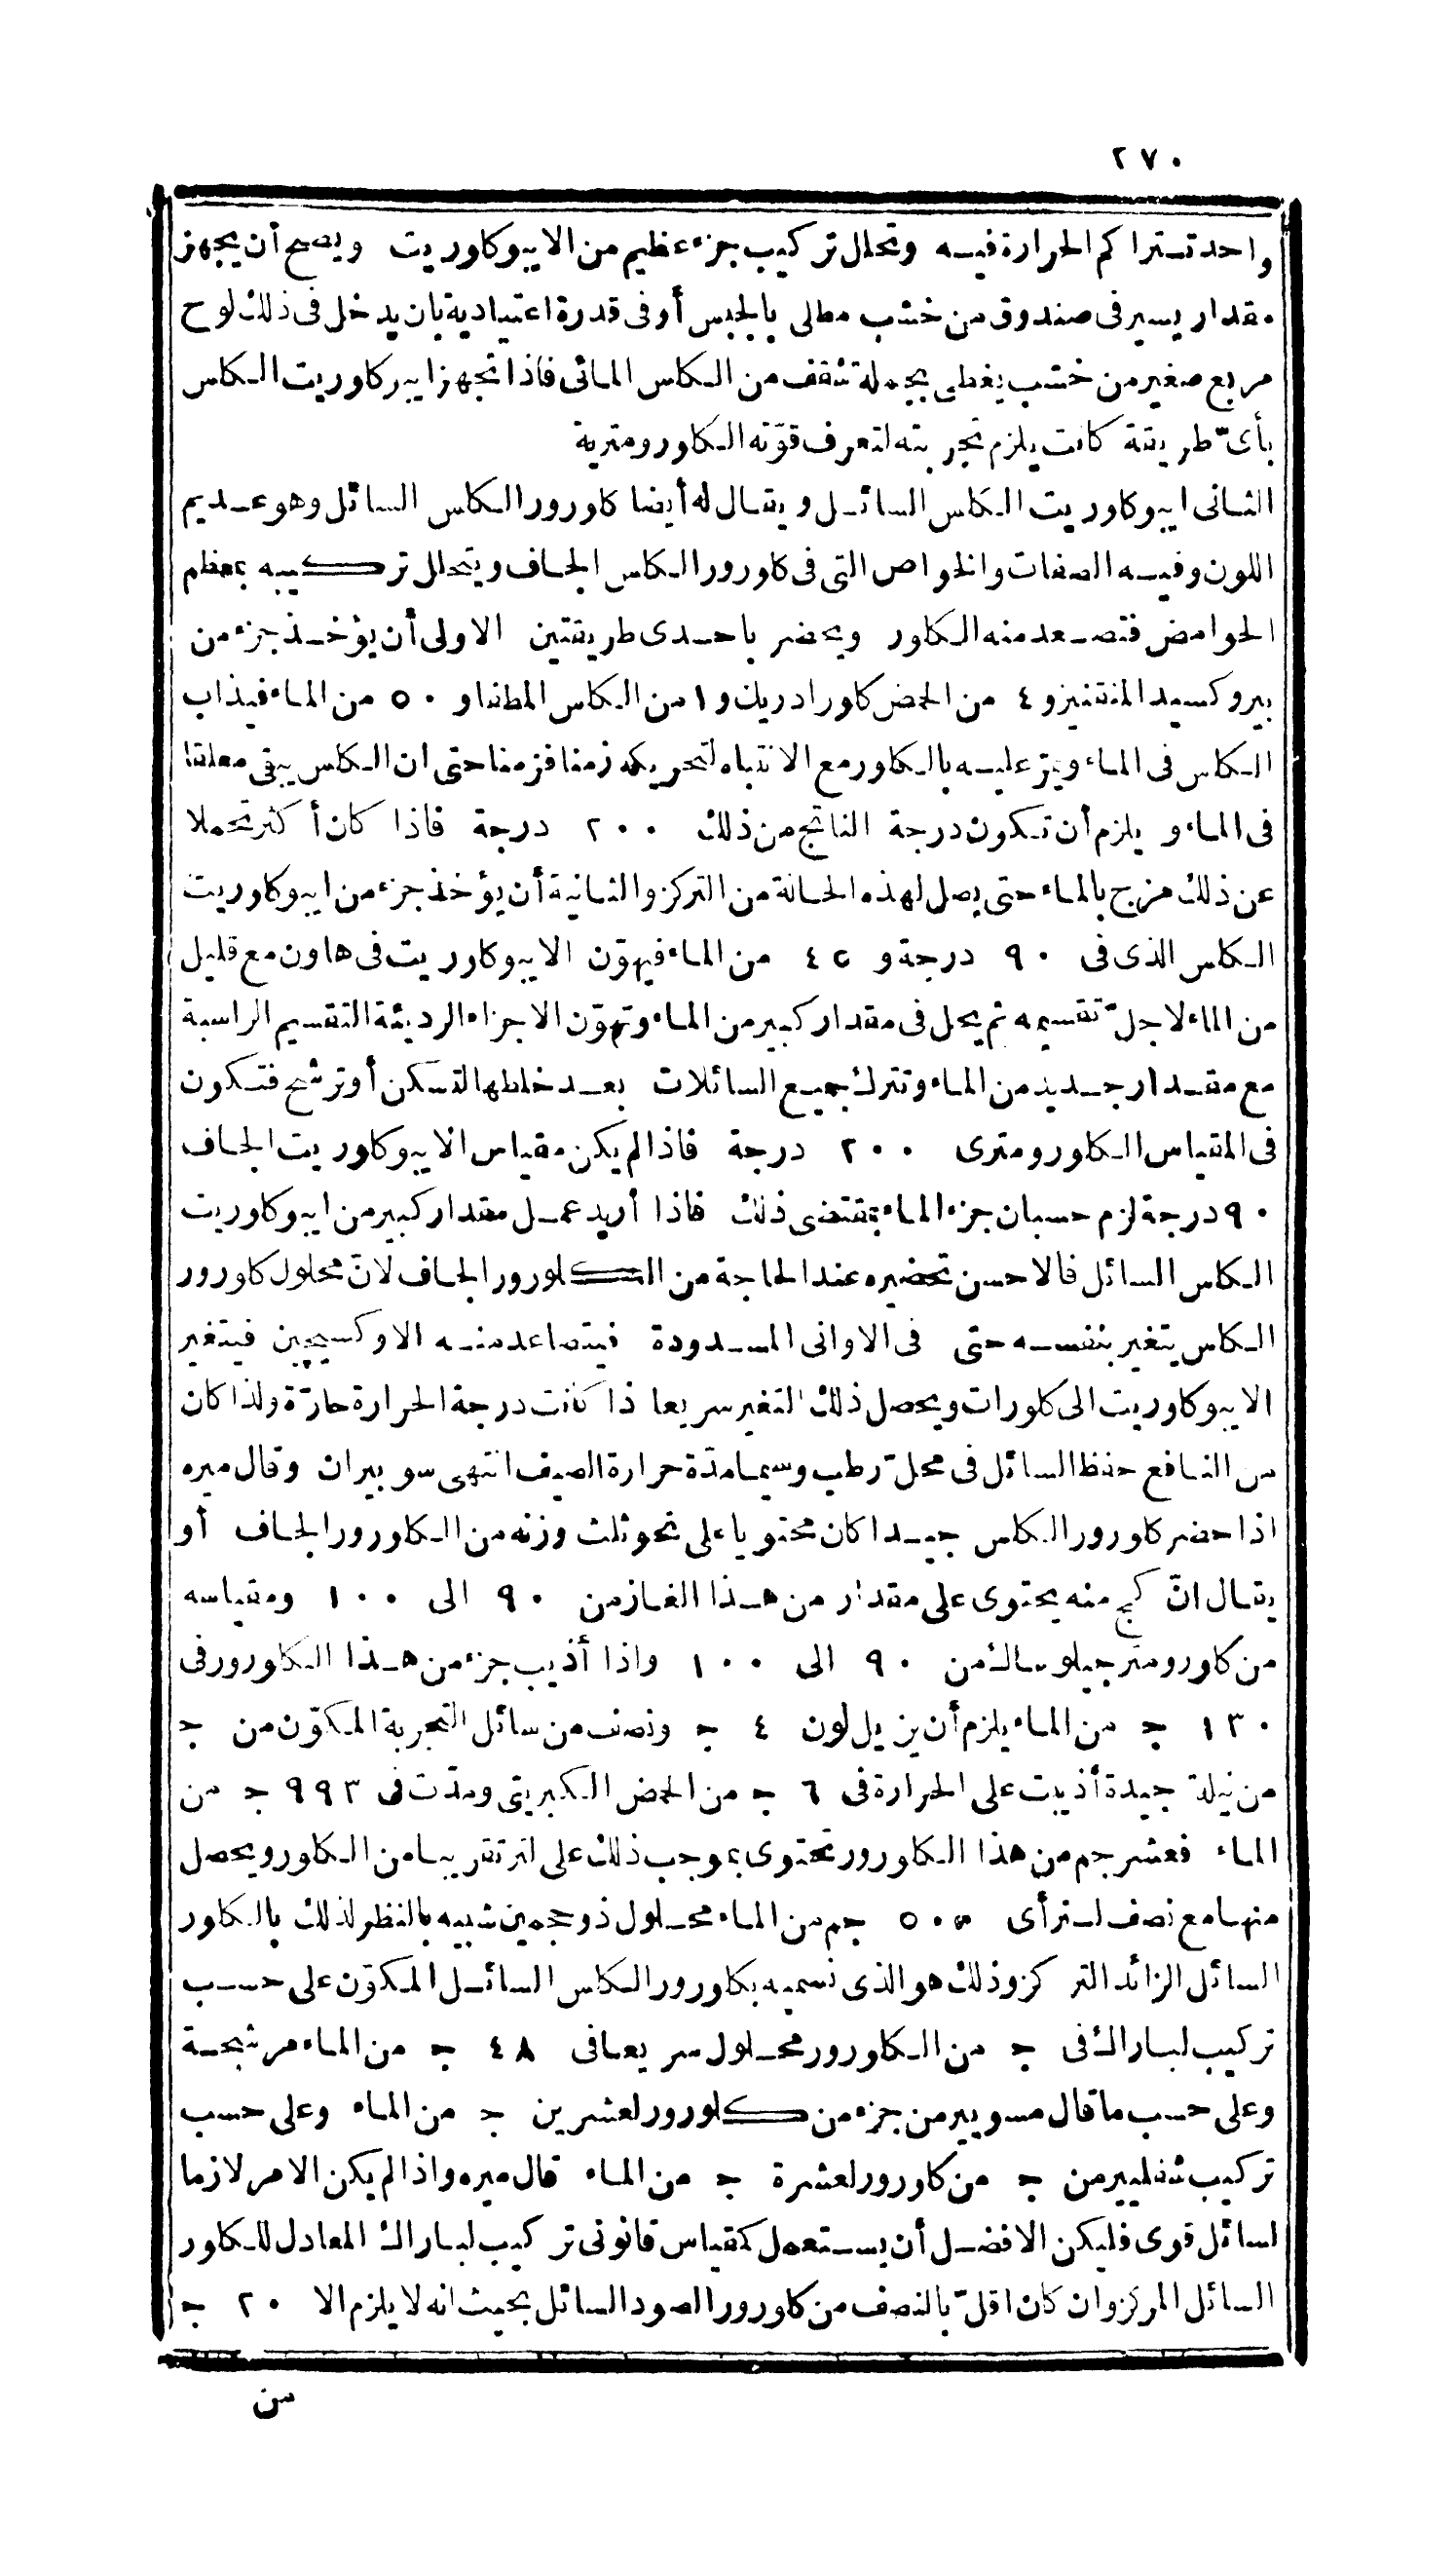 ٢٧٠
واحد تتراكم الحرارة فيه وتحلل تركيب جزء عظيم من الايبوكلوريت ويصح أن يجهز
مقدار يسير فى صندوق من خشب مطلى بالجبس أو فى قدرة اعتيادية بان يدخل فى ذلك لوح
مربع صغير من خشب يغطى بجملة شقف من الكلس المائى فاذا تجهز ايبركلوريت الكلس
بأىّ طريقة كانت يلزم تجربته لتعرف قوّته الكلورومترية
الثانى ايبوكلوريت الكلس السائل ويقال له أيضا كلورور الكلس السائل وهو عديم
اللون وفيه الصفات والخواص التى فى كلورور الكلس الجاف ويتحلل تركيبه بمعظم
الحوامض فتصعد منه الكلور ويحضر باحدى طريقتين الاولى أن يؤخذ جزء من
بيروكسيد المنقنيز و ٤ من الحمض كلورادريك و ١ من الكلس المطفا و ٥٠ من الماء فيذاب
الكلس فى الماء ويمرّ عليه بالكلور مع الانتباه لتحريكه زمنا فزمنا حتى ان الكلس يبقى معلقا
فى الماء ويلزم أن تكون درجة الناتج من ذلك ٢٠٠ درجة فاذا كان أكثر تحملا
عن ذلك مزج بالماء حتى يصل لهذه الحالة من التركز والثانية أن يؤخذ جزء من ايبوكلوريت
الكلس الذى فى ٩٠ درجة و ٤٥ من الماء فيهوّن الايبوكلوريت فى هاون مع قليل
من الماء لاجل تقسيمه ثم يحل فى مقدار كبير من الماء وتهوّن الاجزاء الرديئة التقسيم الراسبة
مع مقدار جديد من الماء وتترك جميع السائلات بعد خلطها لتسكن أو ترشح فتكون
فى المقياس الكلورومترى ٢٠٠ درجة فاذا لم يكن مقياس الايبوكلوريت الجاف
٩٠ درجة لزم حسبان جزء الماء بمقتضى ذلك فاذا أريد عمل مقدار كبير من ايبوكلوريت
الكلس السائل فالاحسن تحضيره عند الحاجة من الكلورور الجاف لانّ محلول كلورور
الكلس يتغير بنفسه حتى فى الاوانى المسدودة فيتصاعد منه الاوكسيجين فيتغير
الايبوكلوريت الى كلورات ويحصل ذلك التغير سريعا اذا كانت درجة الحرارة حارّة ولذا كان
من النافع حفظ السائل فى محلّ رطب وسيما مدّة حرارة الصيف انتهى سوبيران وقال ميره
اذا حضر كلورور الكلس جيدا كان محتويا على نحو ثلث وزنه من الكلورور الجاف أو
يقال انّ كج منه يحتوى على مقدار من هذا الغاز من ٩٠ الى ١٠٠ ومقياسه
من كلورومتر جيلوساك من ٩٠ الى ١٠٠ واذا أذيب جزء من هذا الكلورور فى
١٣٠ ج من الماء يلزم أن يزيل لون ٤ ج ونصف من سائل التجربة المكوّن من ج
من نيلة جيدة أذيبت على الحرارة فى ٦ ج من الحمض الكبريتى ومدّت فى ٩٩٣ ج من
الماء فعشر جم من هذا الكلورور تحتوى بموجب ذلك على لتر تقريبا من الكلور ويحصل
منها مع نصف لتر أى ٥٠٠ جم من الماء محلول ذو حجمين شبيه بالنظر لذلك بالكلور
السائل الزائد التركز وذلك هو الذى نسميه بكلورور الكلس السائل المكوّن على حسب
تركيب لباراك فى ج من الكلورور محلول سريعا فى ٤٨ ج من الماء مرشحة
وعلى حسب ما قال مسويير من جزء من كلورور لعشرين ج من الماء وعلى حسب
تركيب شفليير من ج من كلورور لعشرة ج من الماء قال ميره واذا لم يكن الامر لازما
لسائل قوى فليكن الافضل أن يستعمل كمقياس قانونى تركيب لباراك المعادل للكلور
السائل المركز وان كان اقلّ بالنصف من كلورور الصود السائل بحيث انه لا يلزم الا ٢٠ ج
من